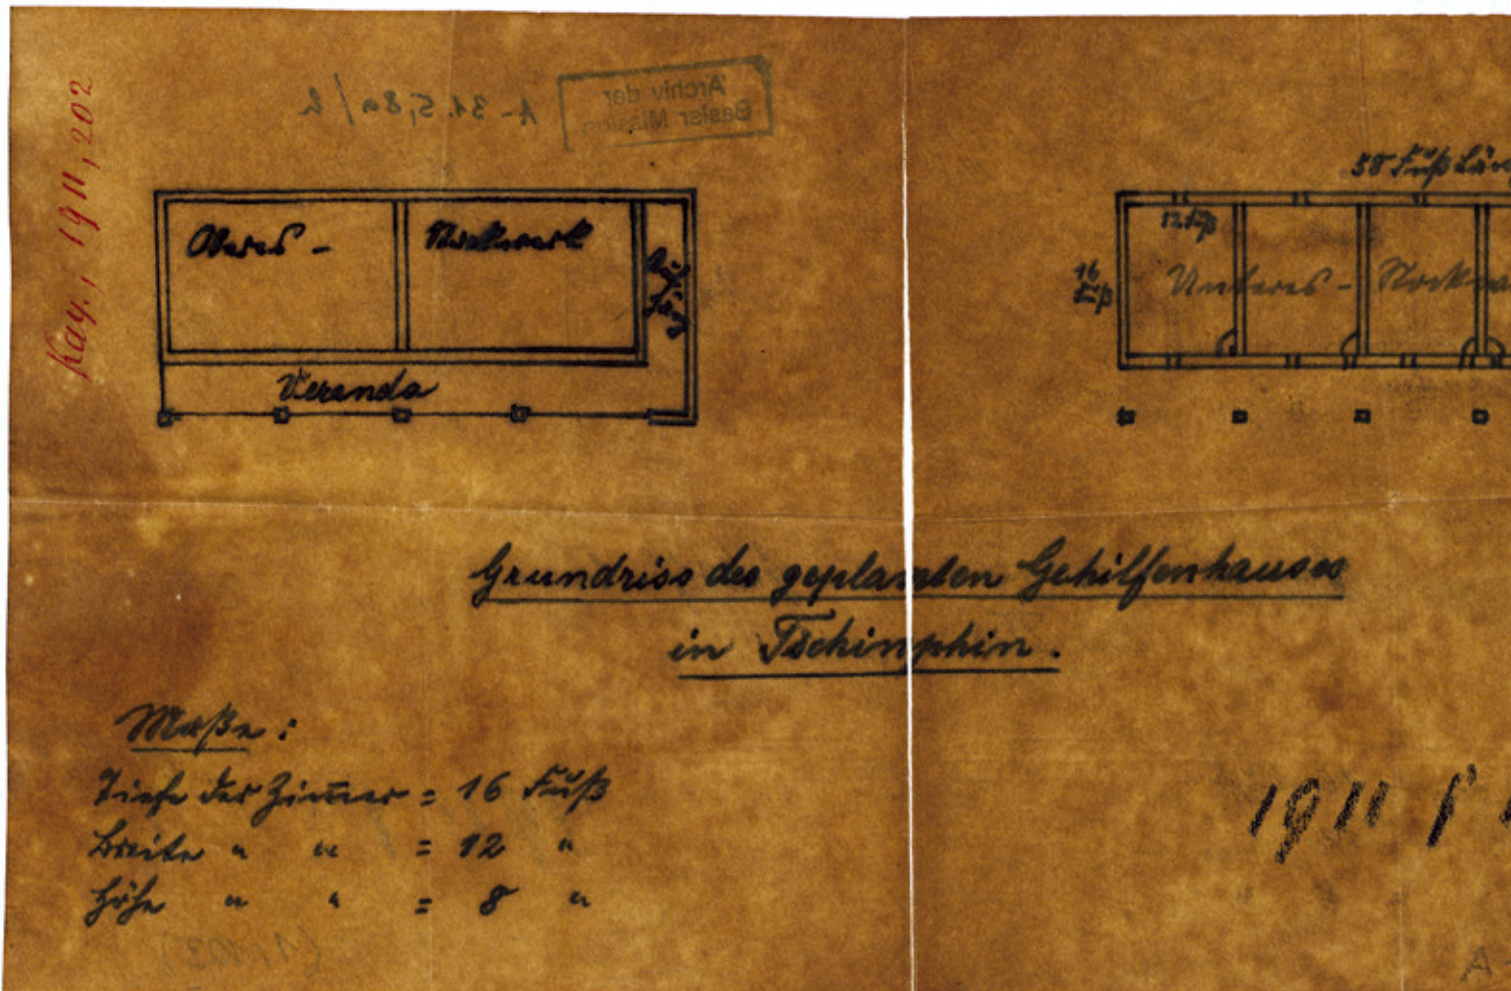 Kay., 1911, 202
A-31.5,8a/2
Archiv der
Basler Mission
Oberes - Stockwerk
Aufgang
Veranda
58 Fuß Län
12 Fuß
16
Fuß
Unteres - Stockw
Grundriss des geplanten Gehilfenhauses
in Tschinphin.
Maße:
Tiefe der Zimmer = 16 Fuß
Breite " " = 12 "
Höhe " " = 8 "
1911
A-